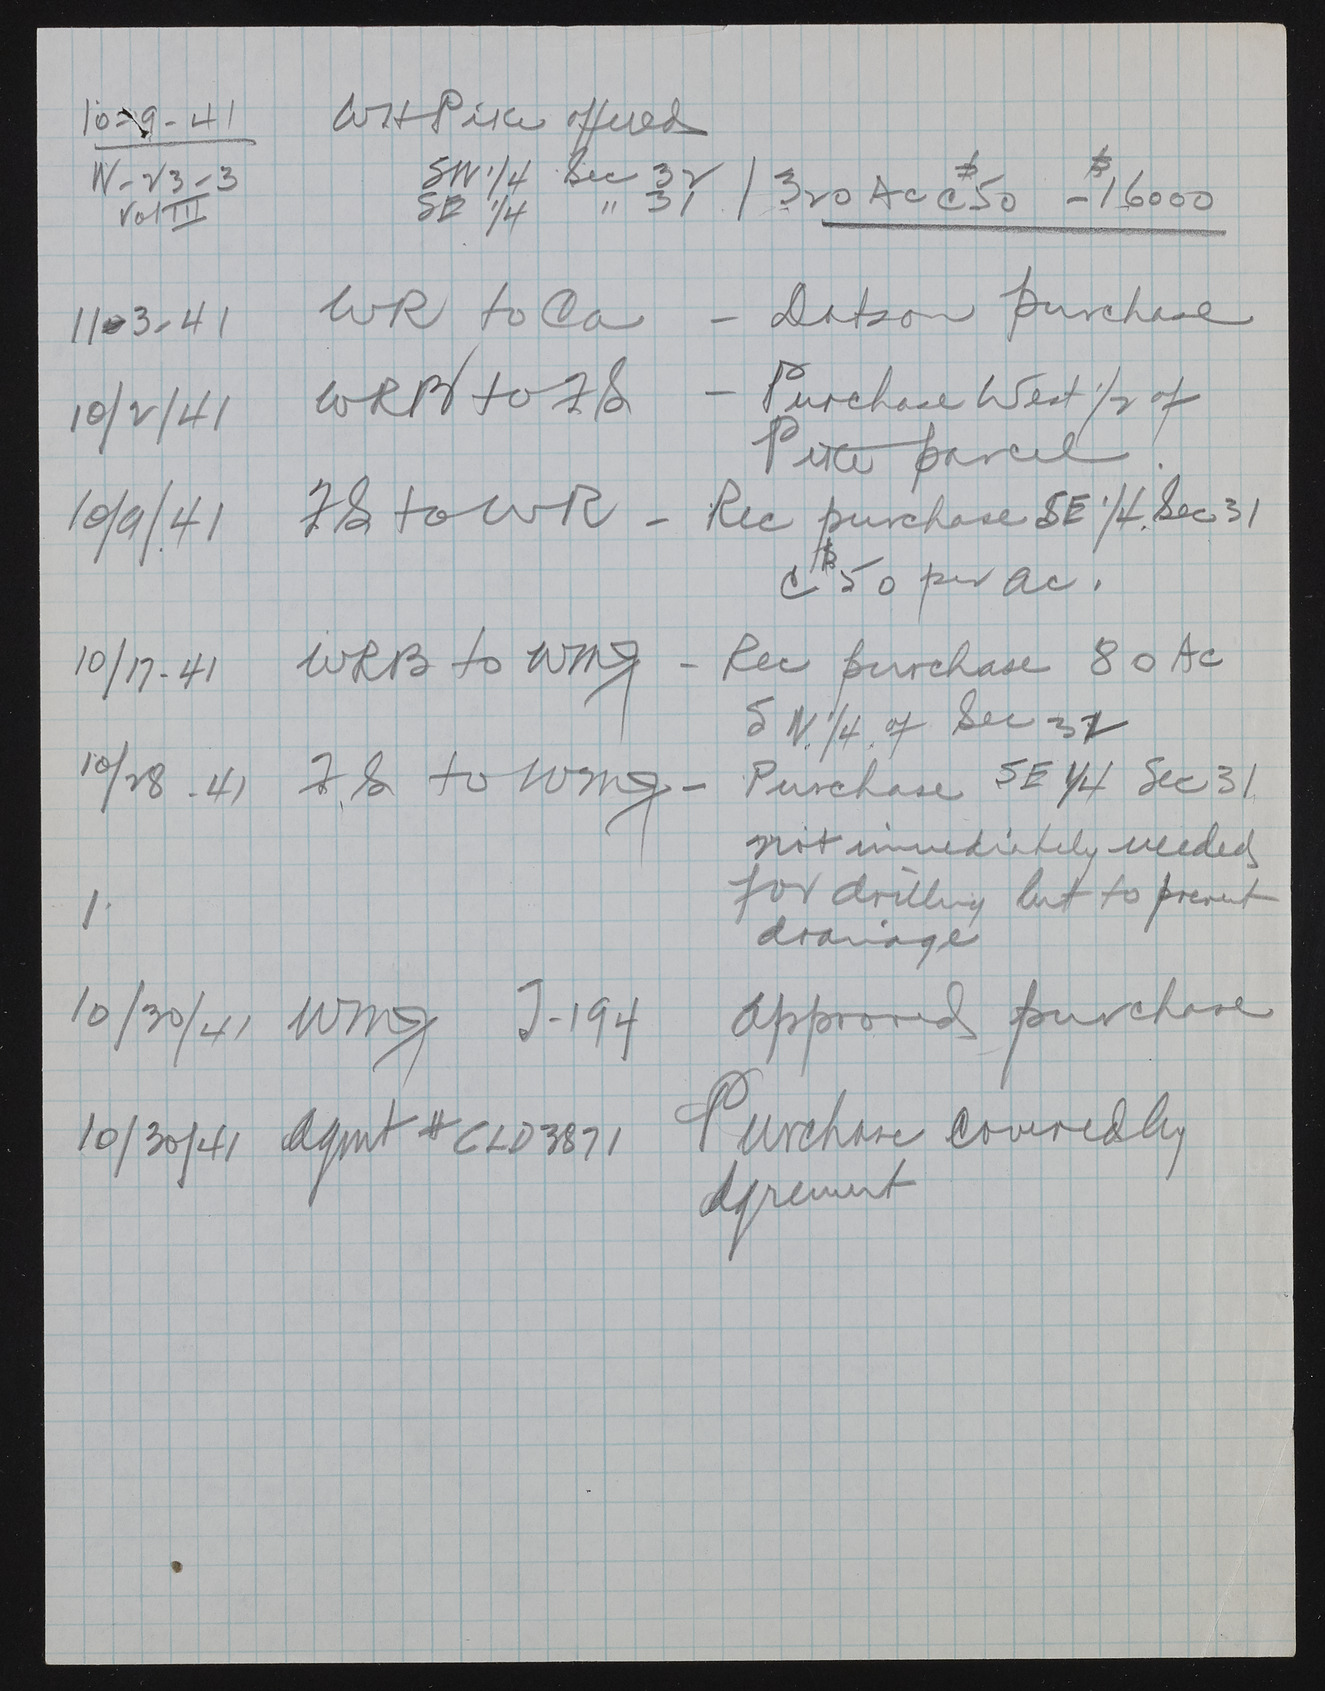 10-9-41 WH Pike offered
W-23-3 SW 1/4 Sec 32 / 320 Ac @ $50 - $16000
Vol III SE 1/4 " 31
11-3-41 WR to Ca - Dotson purchase
10/2/41 WRB to FS - Purchase West 1/2 of
Pike parcel.
10/9/41 FS to WR - Rec purchase SE 1/4 Sec 31
@ $50 per ac.
10/17-41 WRB to WMG - Rec purchase 80 Ac
SW 1/4 of Sec 32
10/28-41 F.S. to WMG - Purchase SE 1/4 Sec 31
not immediately needed
1. for drilling but to prevent
drainage
10/30/41 WMG J-194 Approved purchase
10/30/41 Agmt # CLD3871 Purchase covered by
Agrement